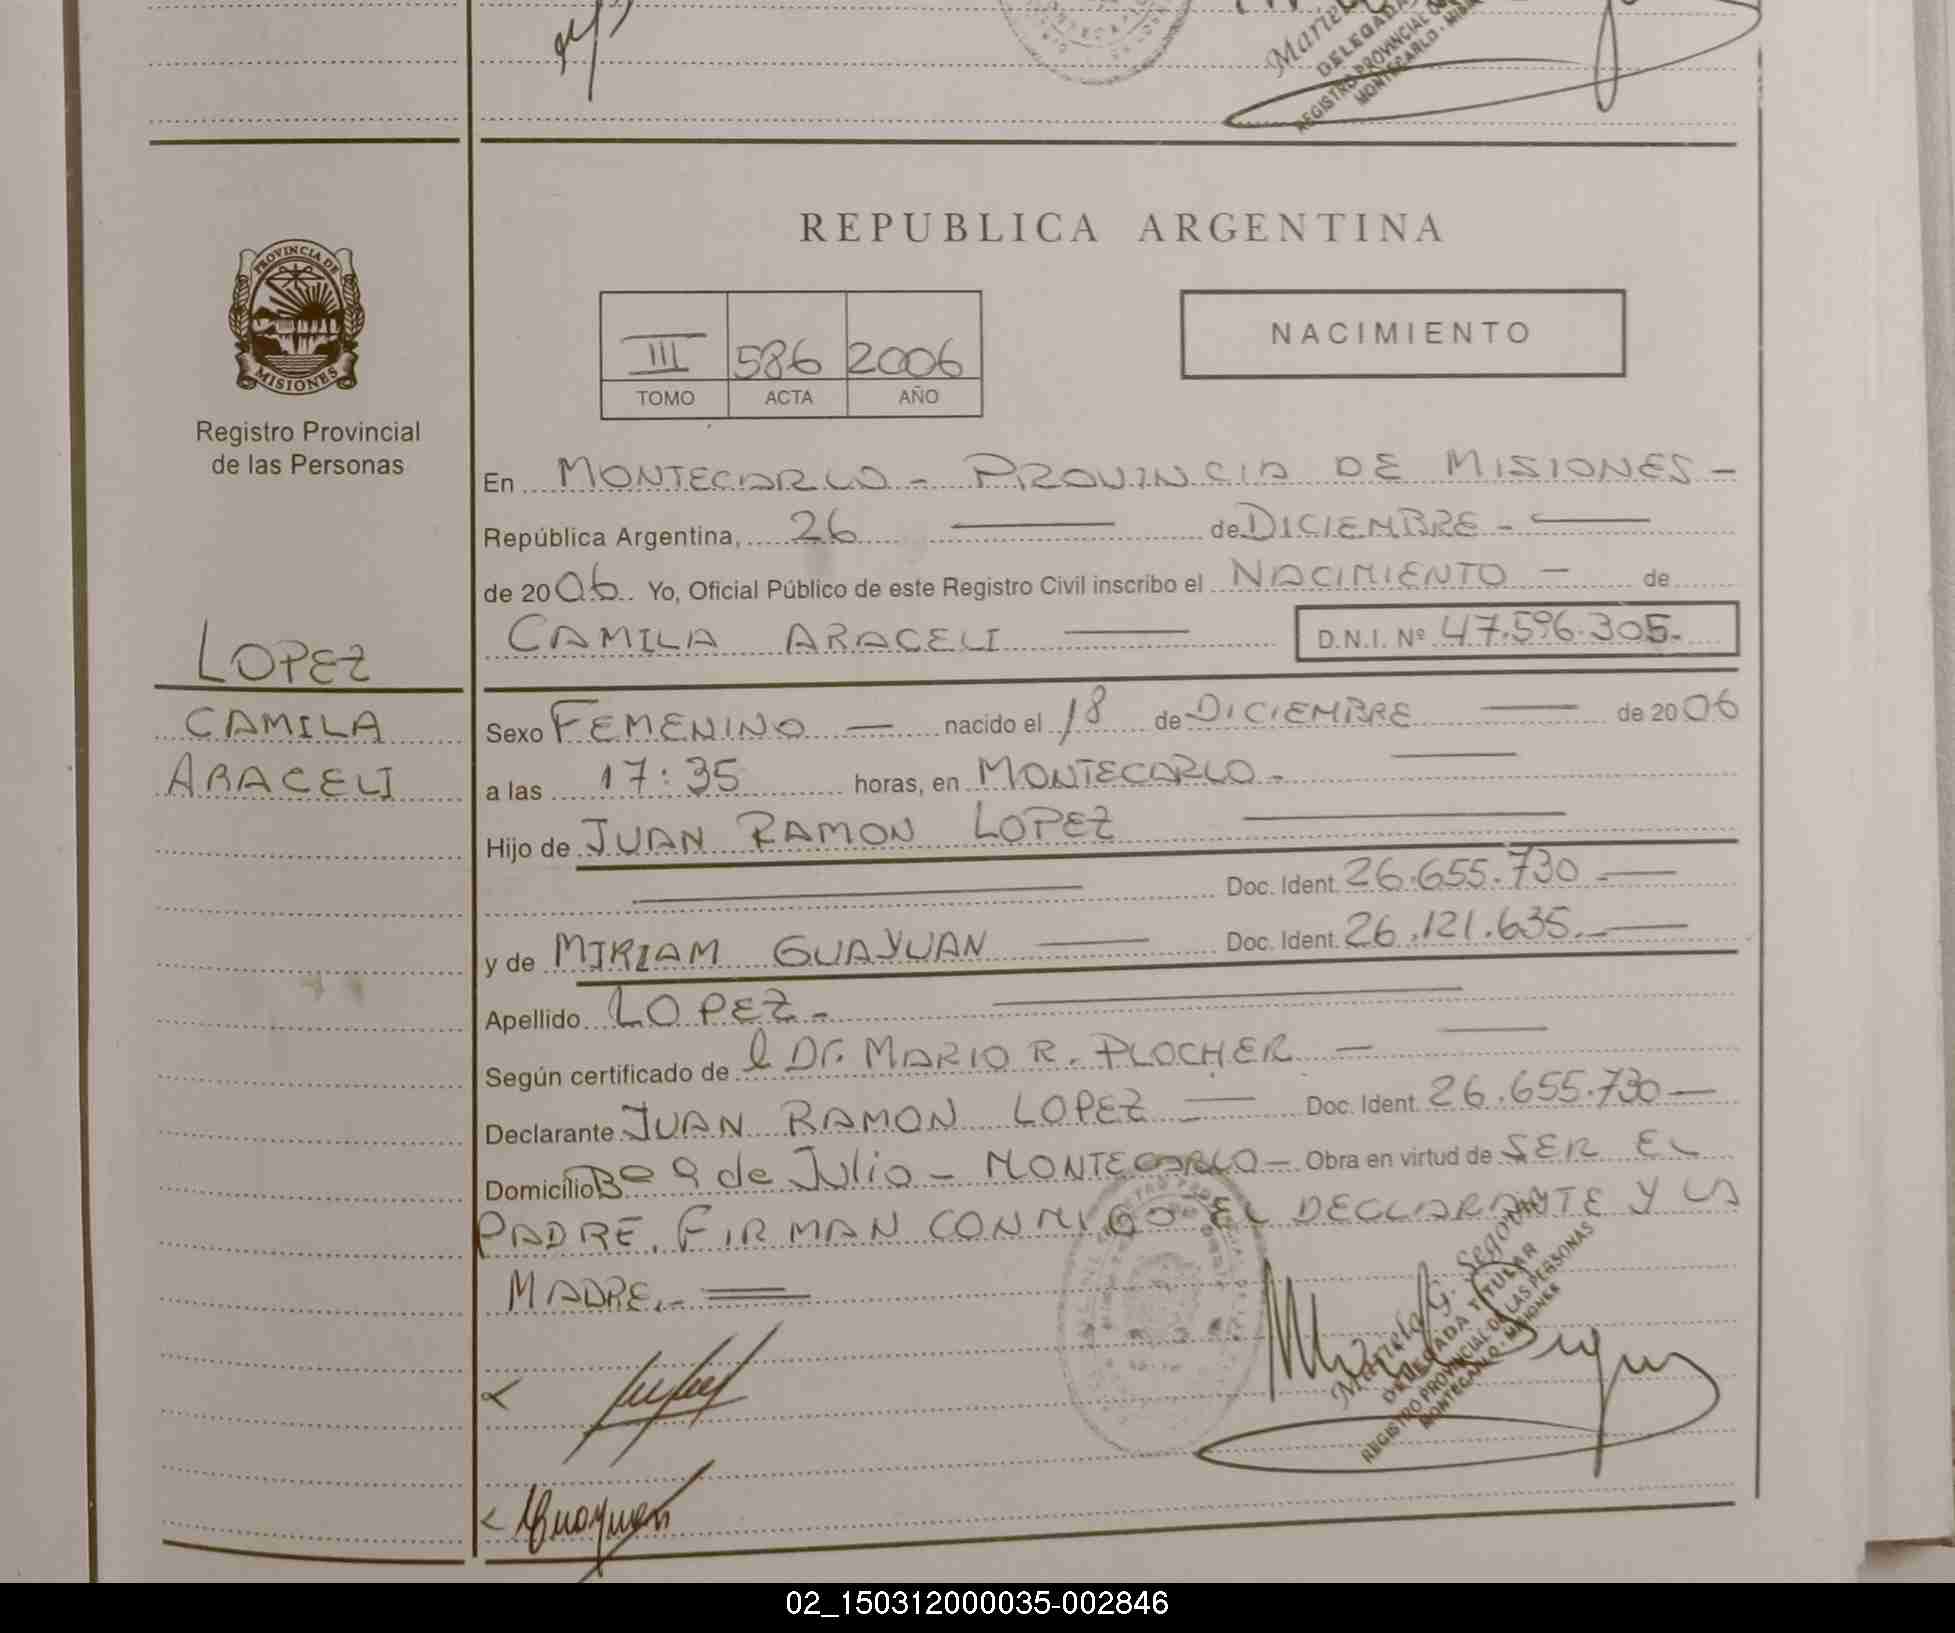 Mariel
DELEGADA
REGISTRO PROVINCIAL
MONTECARLO - MISI
REPUBLICA ARGENTINA
PROVINCIA DE
MISIONES
III 586 2006
TOMO ACTA AÑO
NACIMIENTO
Registro Provincial
de las Personas
En MONTECARLO - PROVINCIA DE MISIONES -
República Argentina, 26 de DICIEMBRE -
de 2006 Yo, Oficial Público de este Registro Civil inscribo el NACIMIENTO - de
CAMILA ARACELI D.N.I. Nº 47.596.305-
LOPEZ
CAMILA
ARACELI
Sexo FEMENINO — nacido el 18 de DICIEMBRE — de 2006
a las 17:35 horas, en MONTECARLO -
Hijo de JUAN RAMON LOPEZ
Doc. Ident. 26.655.730 -
y de MIRIAM GUAYUAN — Doc. Ident. 26.121.635.-
Apellido LOPEZ -
Según certificado de l Dr. MARIO R. PLOCHER —
Declarante JUAN RAMON LOPEZ — Doc. Ident. 26.655.730 —
Domicilio Bº 9 de Julio - MONTECARLO - Obra en virtud de SER EL
PADRE. FIRMAN CONMIGO EL DECLARANTE Y LA
MADRE.-
Mariela G. Segovia
DELEGADA TITULAR
REGISTRO PROVINCIAL DE LAS PERSONAS
MONTECARLO - MISIONES
Guayuan
02_150312000035-002846